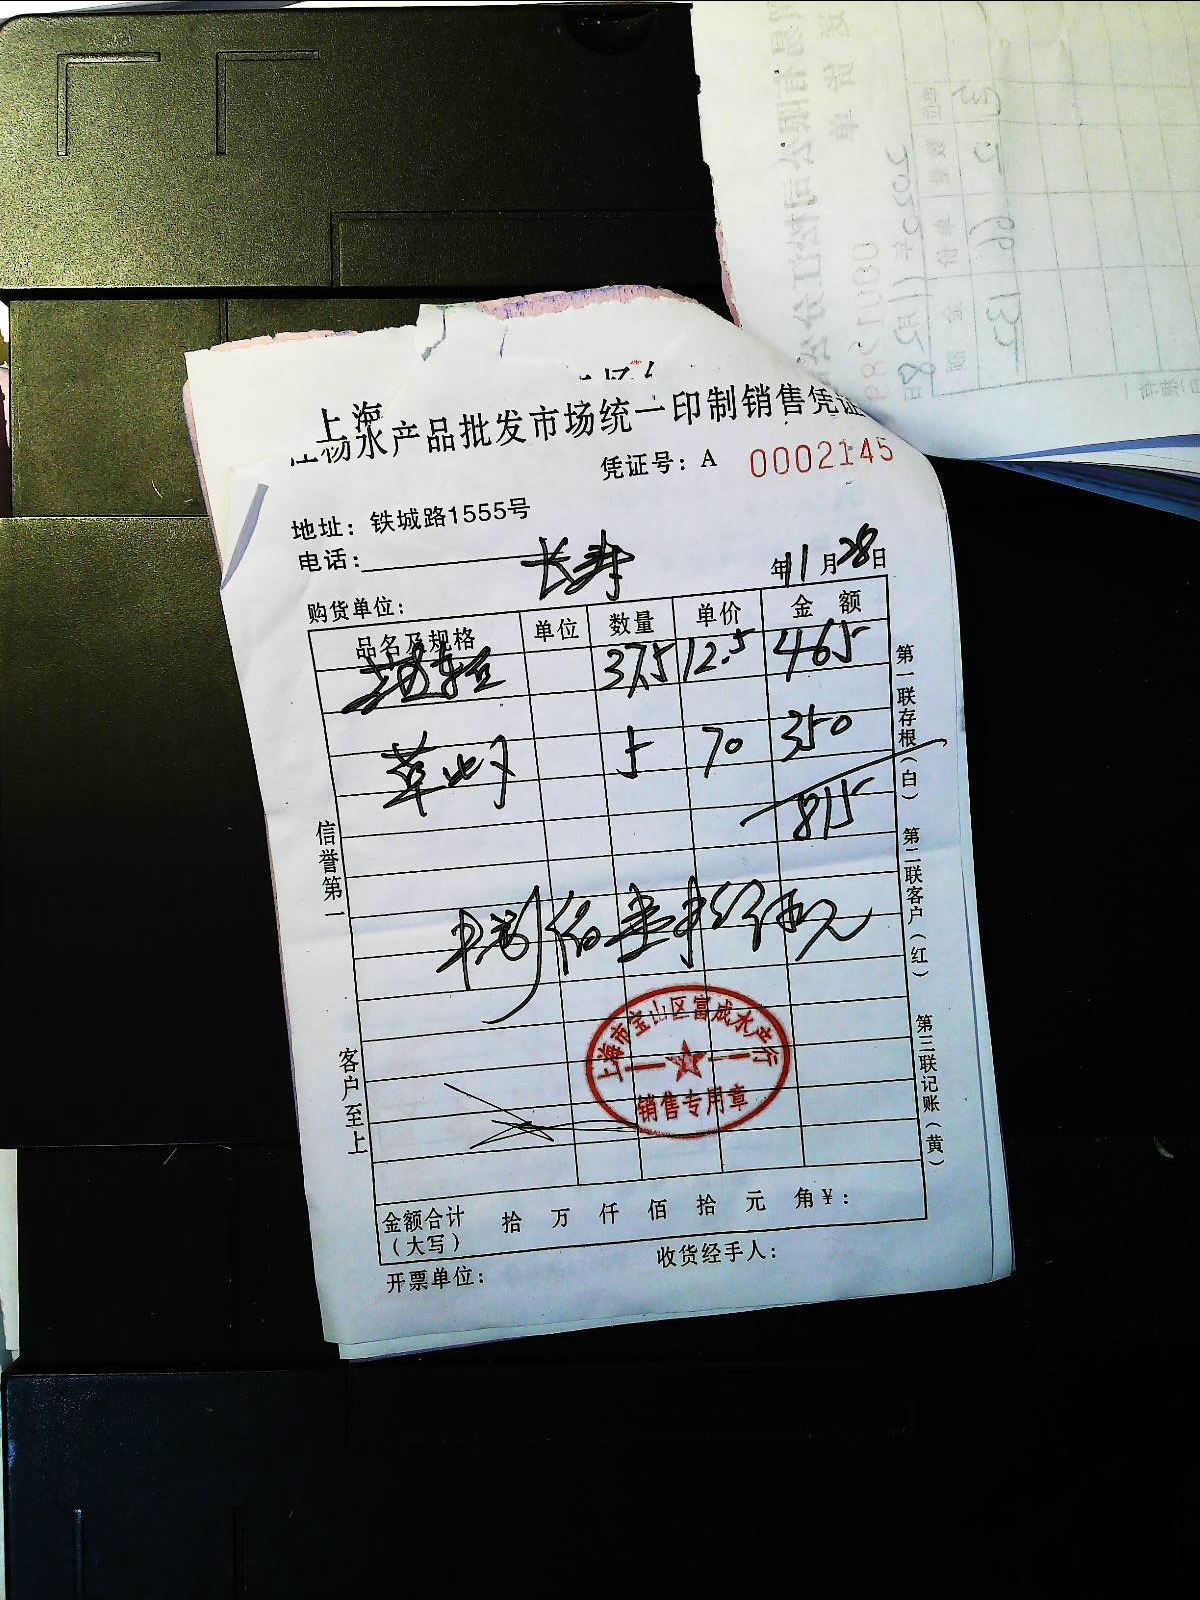 上海
江杨水产品批发市场统一印制销售凭证
凭证号：A 0002145
地址：铁城路1555号
电话：
购货单位： 长寿 年11月28日
品名及规格 单位 数量 单价 金 额
37.5 12.5 465
5 70 350
815
捌佰壹拾伍元
上海市宝山区富成水产行
销售专用章
金额合计（大写） 拾 万 仟 佰 拾 元 角 ¥：
开票单位： 收货经手人：
信誉第一
客户至上
第一联存根（白）
第二联客户（红）
第三联记账（黄）